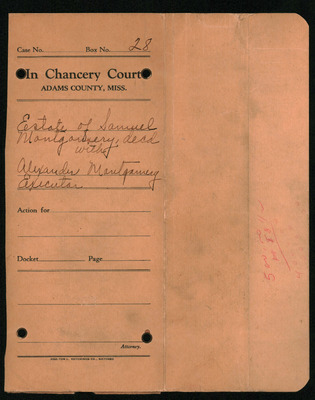 Case No. Box No. 28
In Chancery Court
ADAMS COUNTY, MISS.
Estate of Samuel
Montgomery, decd
with
Alexander Montgomery
Executor
Action for
Docket Page
Attorney.